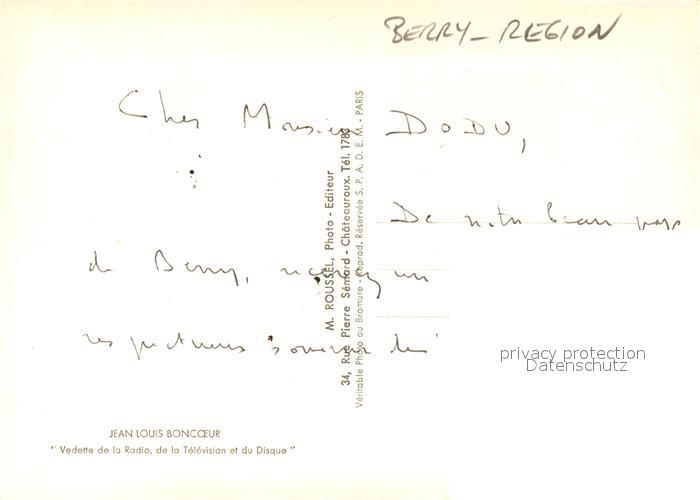 BERRY - REGION
Cher Monsieur DODU,
De notre beau pays
de Berry, recevez un
respectueux souvenir de
M. ROUSSEL, Photo - Editeur
34, Rue Pierre Sémard - Châteauroux. Tél. 1783
Véritable Photo au Bromure - Reprod. Réservée S. P. A. D. E. M. - PARIS
privacy protection
Datenschutz
JEAN LOUIS BONCŒUR
" Vedette de la Radio, de la Télévision et du Disque "